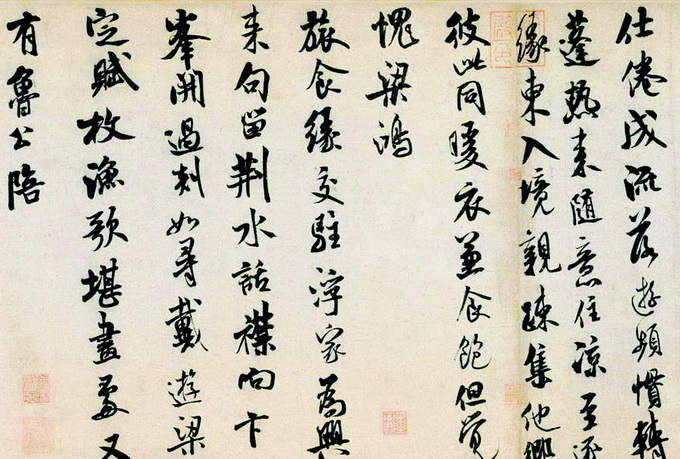 仕倦成流落遊頻慣轉
蓬熱来随意住凉至逐
緣東入境親疎集他鄉
彼此同暖衣兼食飽但覺
愧梁鴻
旅食緣交駐浮家為興
来句留荆水話襟向卞
峯開過剡如尋戴遊梁
定賦枚漁歌堪畫處又
有魯公陪